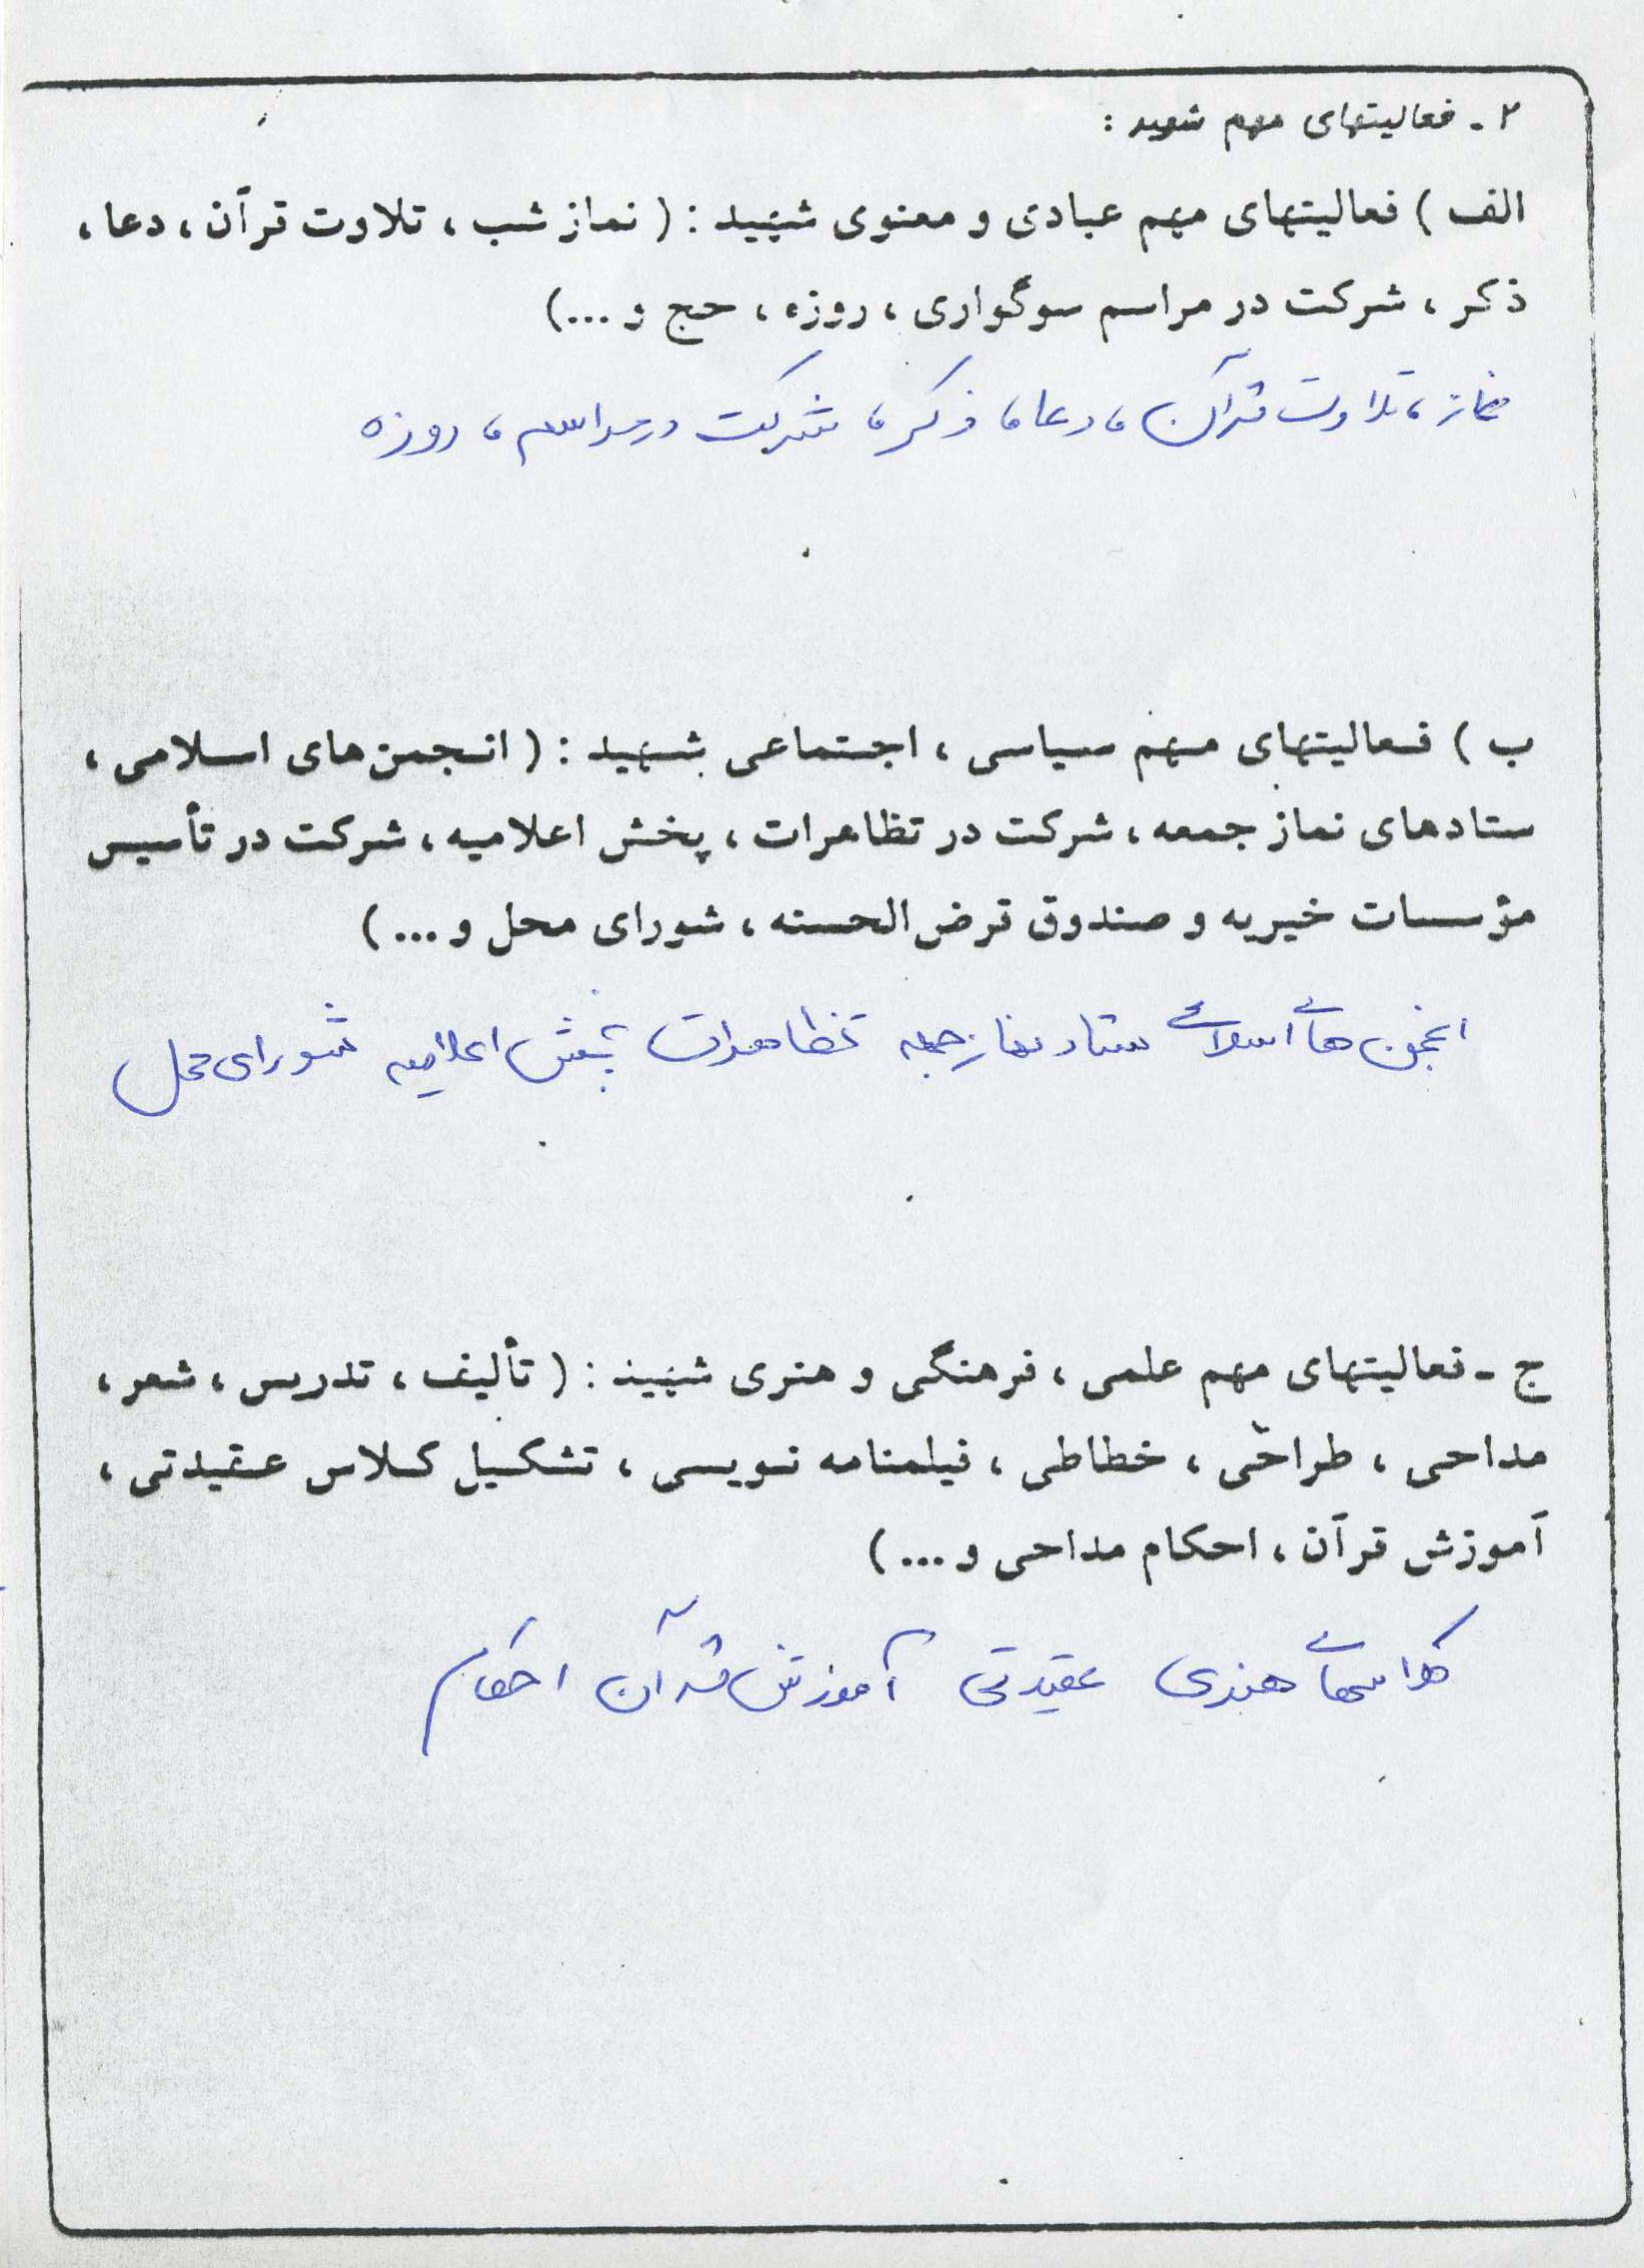 ۲ - فعالیتهای مهم شهید :
الف ) فعالیتهای مهم عبادی و معنوی شهید : ( نماز شب ، تلاوت قرآن ، دعا ،
ذکر ، شرکت در مراسم سوگواری ، روزه ، حج و ...)
نماز ، تلاوت قرآن ، دعا ، ذکر ، شرکت در مراسم ، روزه
ب ) فعالیتهای مهم سیاسی ، اجتماعی شهید : ( انجمن های اسلامی ،
ستادهای نماز جمعه ، شرکت در تظاهرات ، پخش اعلامیه ، شرکت در تأسیس
مؤسسات خیریه و صندوق قرض الحسنه ، شورای محل و ... )
انجمن های اسلامی ستاد نماز جمعه تظاهرات پخش اعلامیه شورای محل
ج - فعالیتهای مهم علمی ، فرهنگی و هنری شهید : ( تألیف ، تدریس ، شعر ،
مداحی ، طراحی ، خطاطی ، فیلمنامه نویسی ، تشکیل کلاس عقیدتی ،
آموزش قرآن ، احکام مداحی و ... )
کلاسهای هنری عقیدتی آموزش قرآن احکام